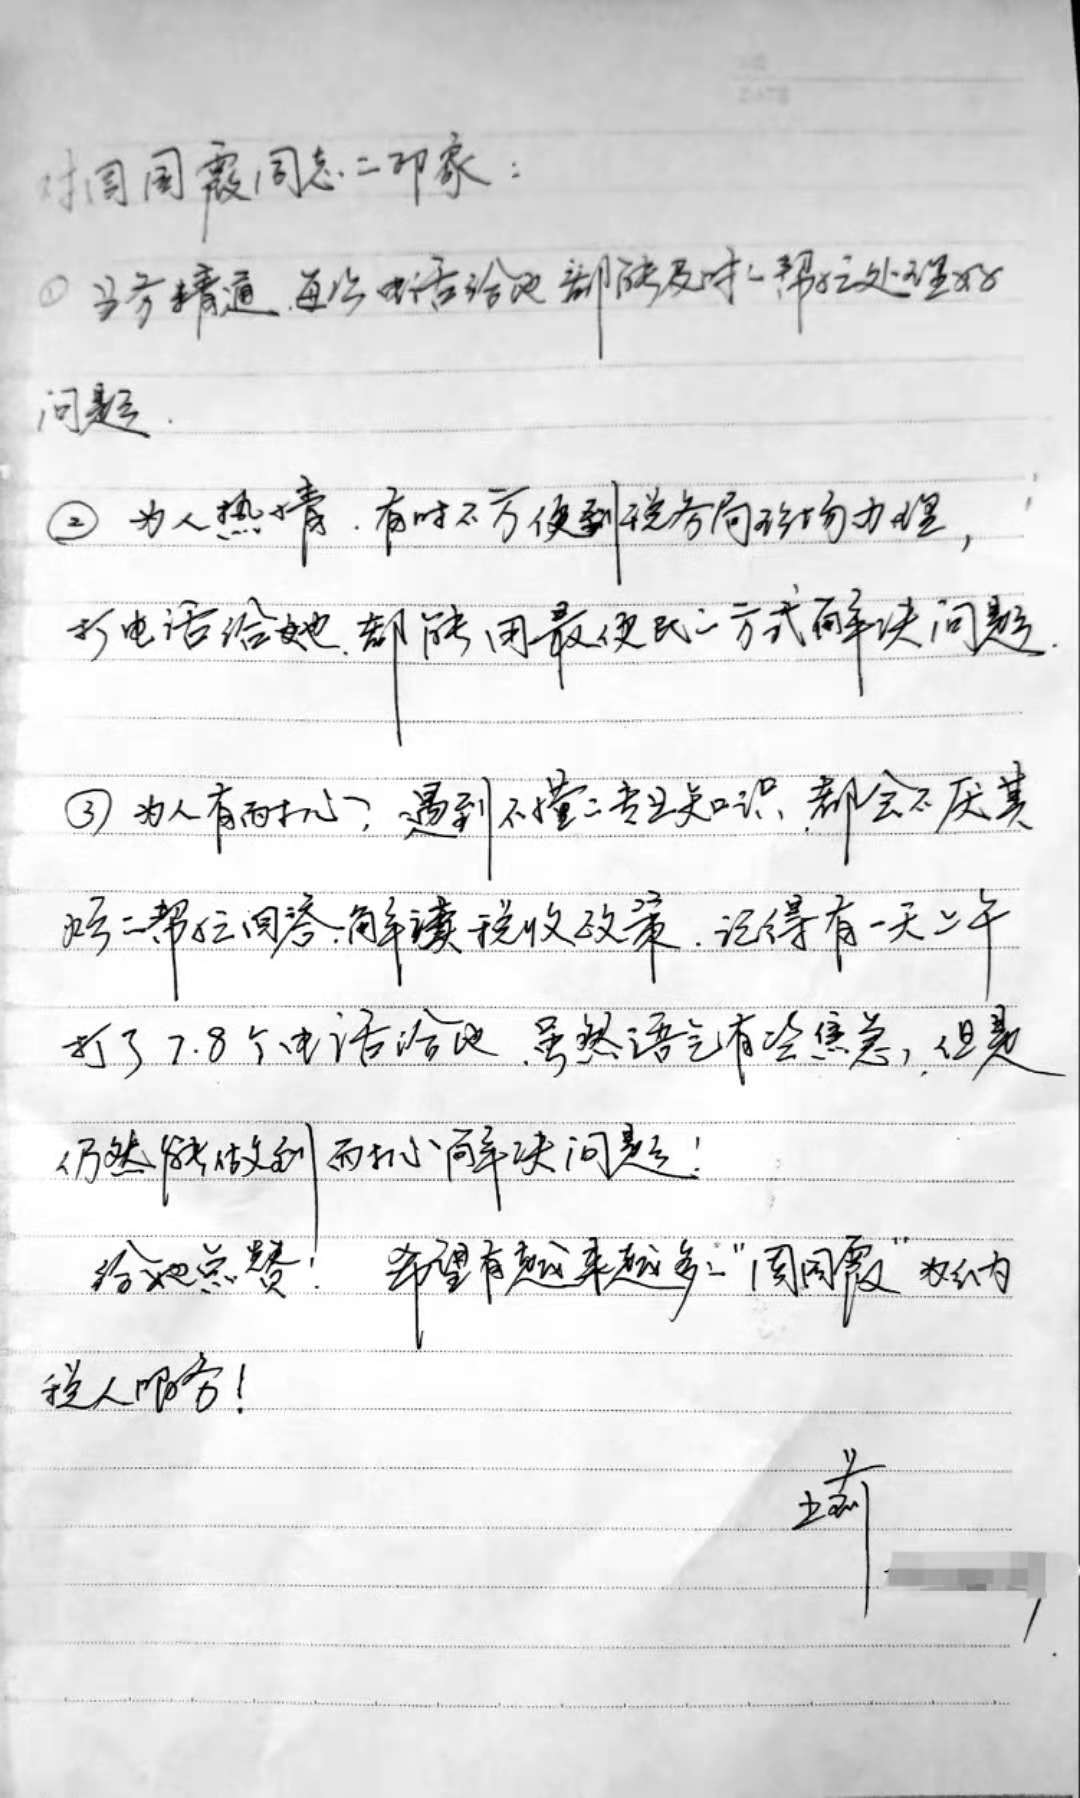 对周国霞同志的印象：
① 业务精通，每次电话给她都能及时的帮忙处理好
问题.
② 为人热情，有时不方便到税务局现场办理，
打电话给她，都能用最便民的方式解决问题.
③ 为人有耐心，遇到不懂的专业知识，都会不厌其
烦的帮忙回答、解读税收政策，记得有一天上午
打了7.8个电话给她，虽然语气有些焦急，但是
仍然能做到耐心解决问题！
给她点赞！ 希望有越来越多的“周国霞”为纳
税人服务！